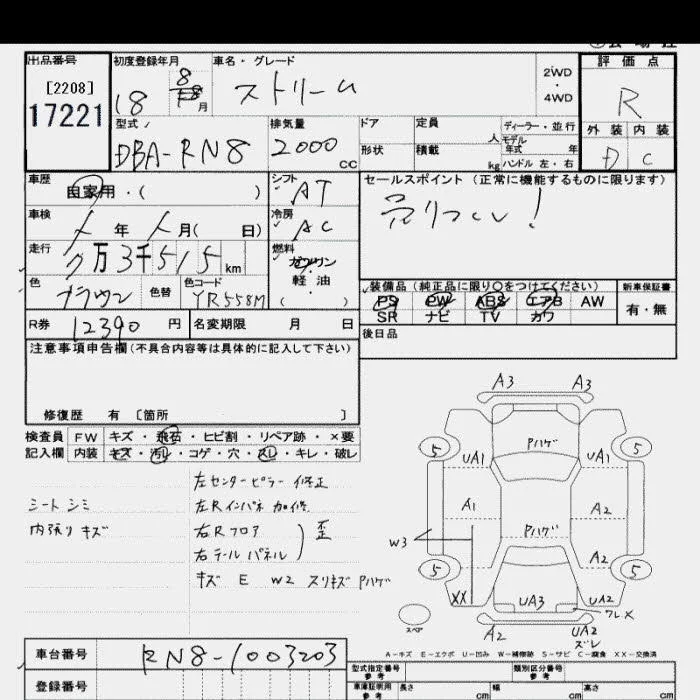 出品番号
[2208]
17221
初度登録年月
18 8 月
車名・グレード
ストリーム
2WD
・
4WD
評価点
R
外装 内装
D C
型式
DBA-RN8
排気量
2000 CC
ドア
定員 人
ディーラー・並行
モデル年式 年
形状
積載 kg
ハンドル 左・右
車歴
自家用・( )
シフト
AT
セールスポイント (正常に機能するものに限ります)
売りつくし!
車検
年 月( 日)
冷房
AC
走行
万3千515 km
燃料
ガソリン
・
軽油
( )
色
ブラウン
色替
色コード
YR558M
装備品(純正品に限り○をつけてください)
新車保証書
PS PW ABS エアB AW
SR ナビ TV カワ
有・無
R券 12390 円
名変期限 月 日
後日品
注意事項申告欄(不具合内容等は具体的に記入して下さい)
修復歴 有 〔箇所 〕
検査員 FW キズ・飛石・ヒビ割・リペア跡・×要
記入欄 内装 キズ・汚レ・コゲ・穴・スレ・キレ・破レ
シート シミ
内張り キズ
左センターピラー 修正
左Rインパネ 加修
右Rフロア
右テールパネル
歪
キズ E W2 スリキズ Pハゲ
A3 A3
5 Pハゲ 5
UA1 UA1
A1 Pハゲ A2
W3
A2
5 5
XX UA3 UA2
ワレX
スペア
A2 UA2
ズレ
A-キズ E-エクボ U-凹み W-補修跡 S-サビ C-腐食 XX-交換済
車台番号 RN8-1003203
登録番号
型式指定番号
参考
類別区分番号
参考
車庫証明用
参考
長さ cm
幅 cm
高さ cm